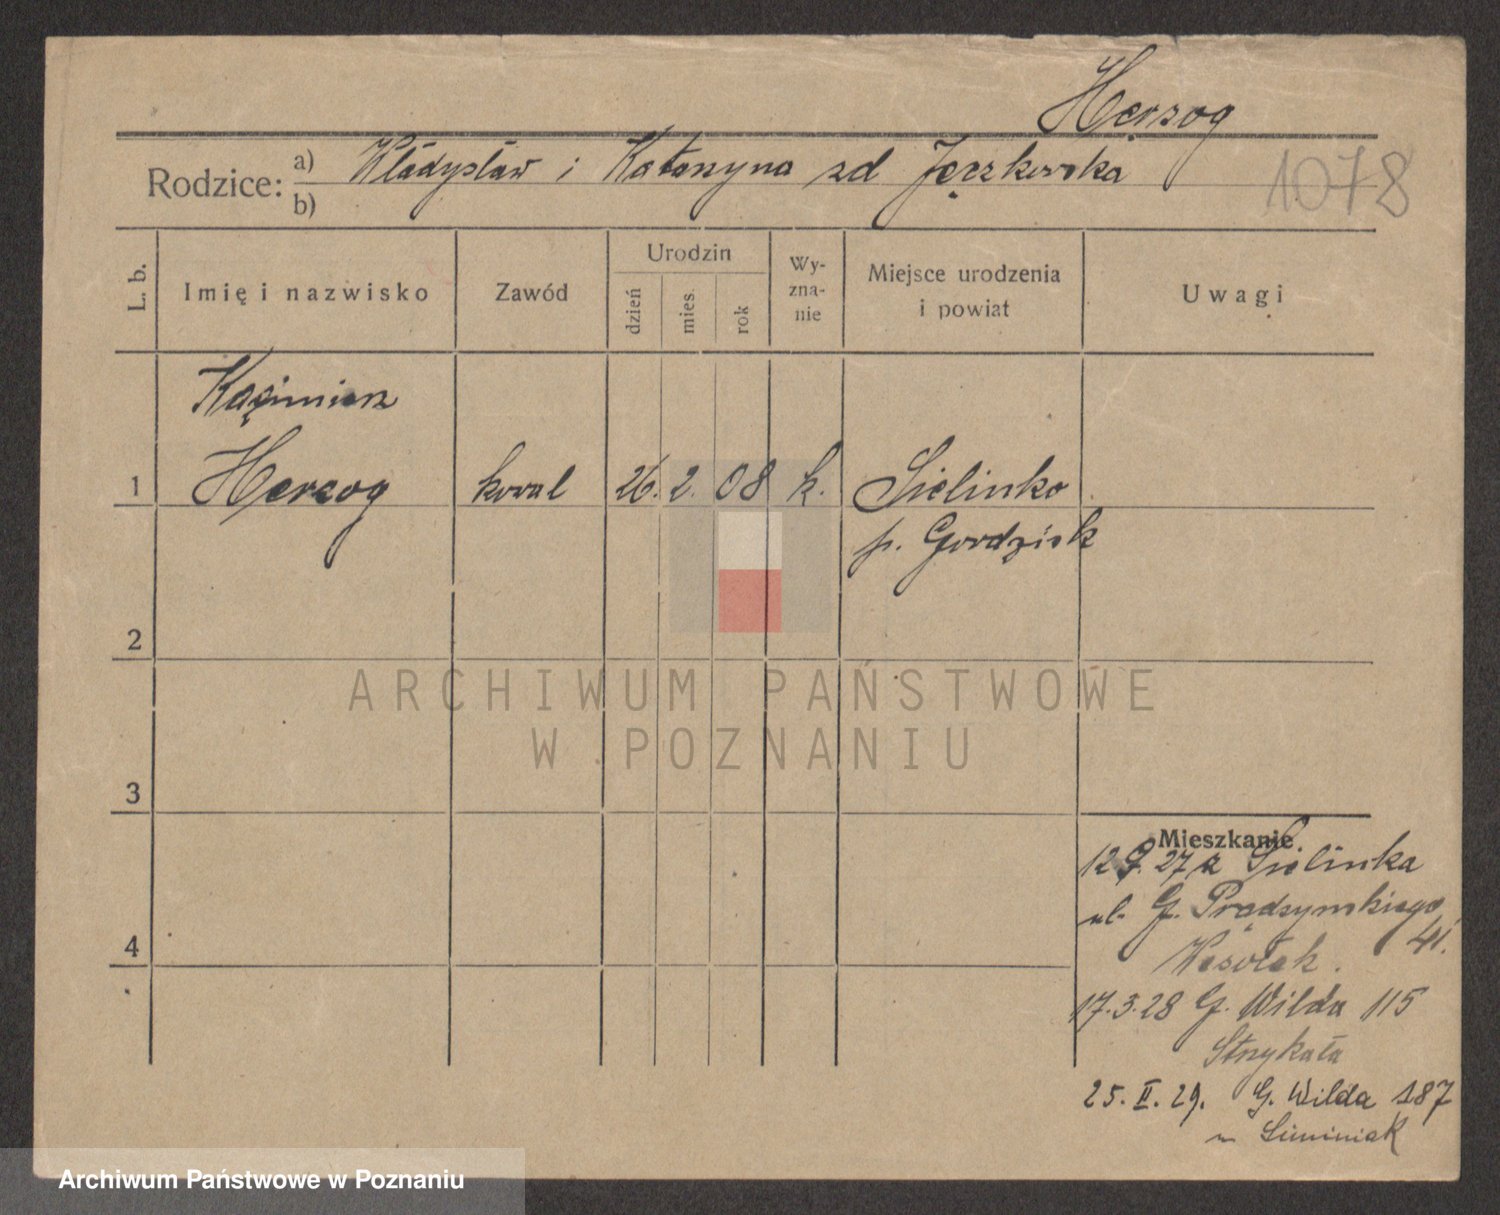 Herzog
Rodzice: a) Władysław i Katarzyna zd Jęczkowska
b)
1078
L. b. Imię i nazwisko Zawód Urodzin dzień mies. rok Wy-zna-nie Miejsce urodzenia i powiat Uwagi
Kazimierz
1 Herzog kowal 26. 2. 08 k. Sielinko
p. Grodzisk
2
ARCHIWUM PAŃSTWOWE
W POZNANIU
3
Mieszkanie
12 9. 27 z Sielinka
ul. G. Prądzyńskiego
41.
4
Wesołek.
17.3.28 G. Wilda 115
Strykała
25. II. 29. G. Wilda 187
u Siminiak
Archiwum Państwowe w Poznaniu